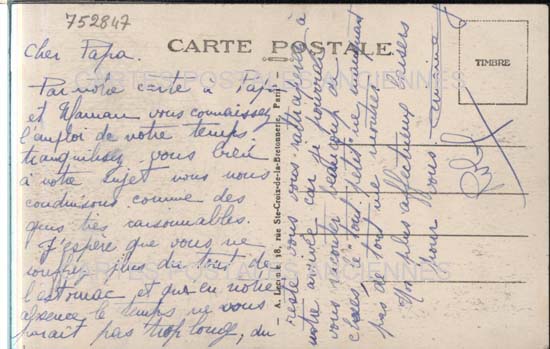 752847
CARTE POSTALE
TIMBRE
CARTES POSTALES ANCIENNES
CARTES POSTALES ANCIENNES
Cher Papa.
Par notre carte à Papi
et Maman vous connaissez
l'emploi de notre temps.
tranquilisez vous bien
à notre sujet nous nous
conduisons comme des
gens très raisonnables.
J'espère que vous ne
souffrez plus du tout de
l'estomac et qu'en notre
absence le temps ne vous
paraît pas trop long, du
reste vous vous rattraperez à
notre arrivée car je pourrai
vous raconter beaucoup de
choses, le tout petit ne manquant
pas de tout me montrer
Mes plus affectueux baisers
pour vous
A. Leconte 18, rue Ste-Croix-de-la-Bretonnerie, Paris